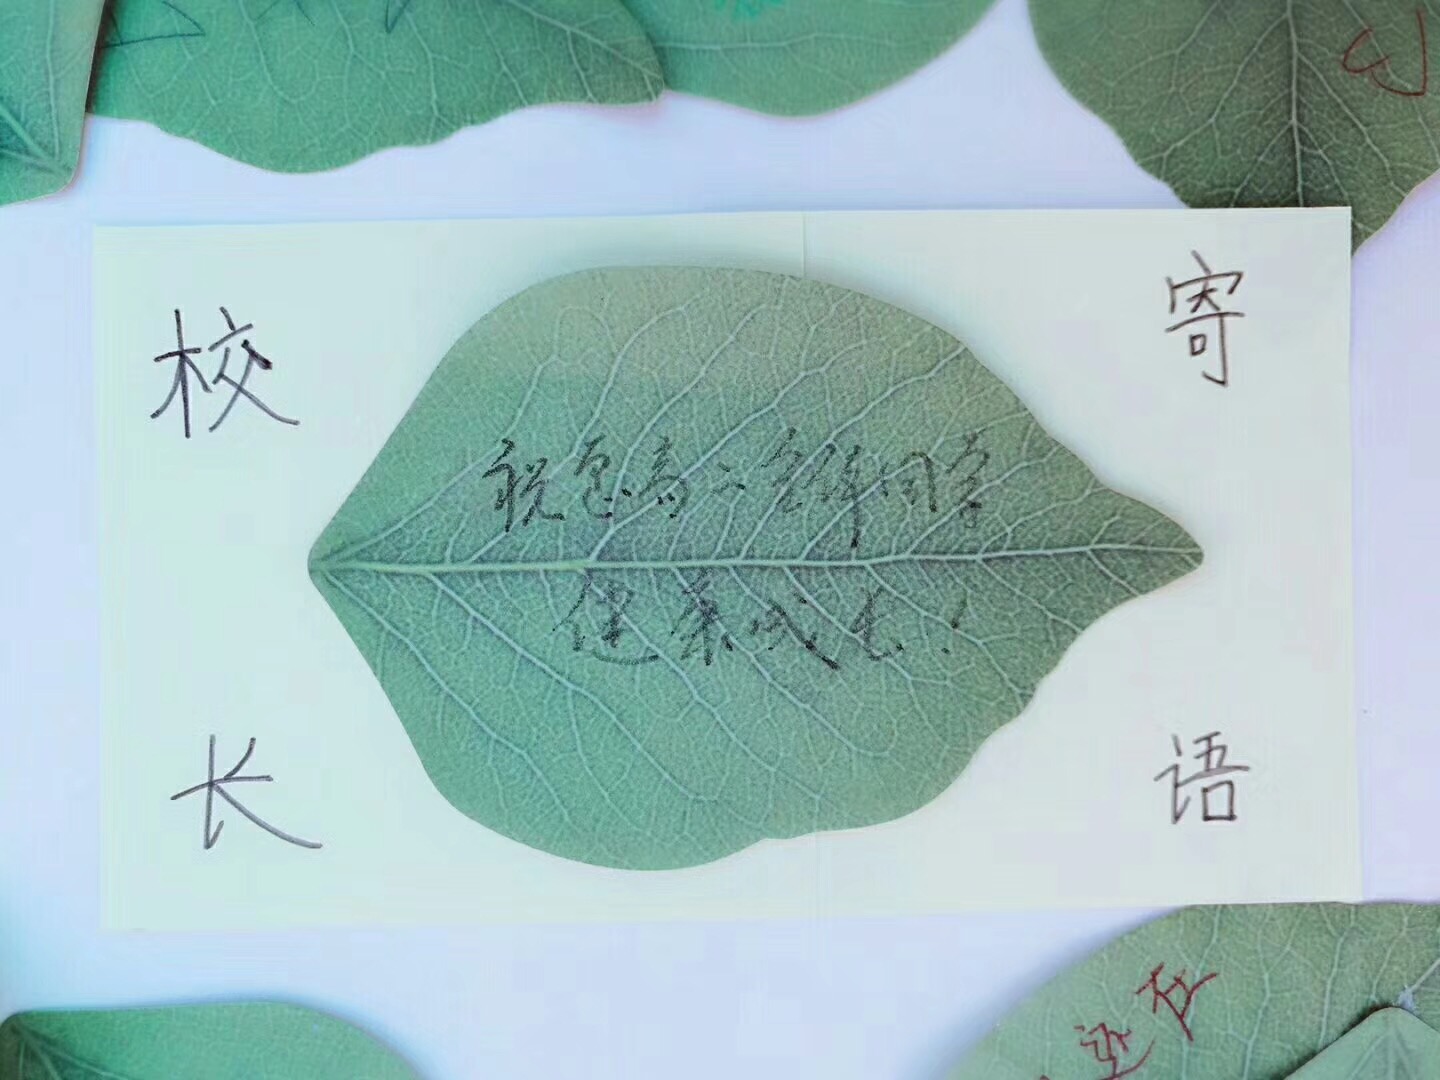 校长
寄语
祝愿高二全体同学
健康成长！